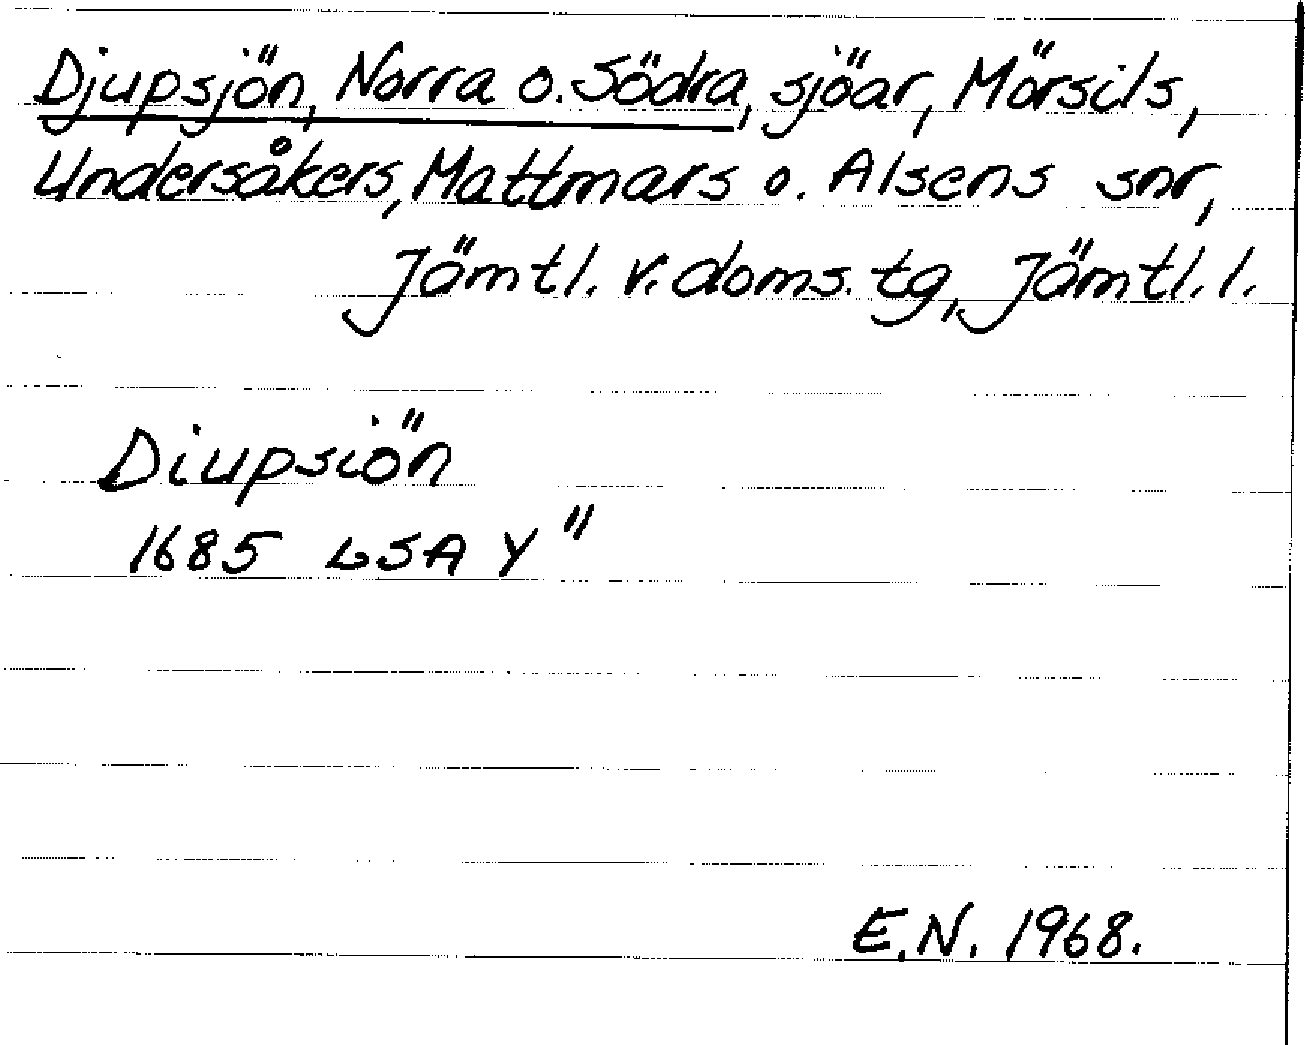 Djupsjön, Norra o. Södra, sjöar, Mörsils,
Undersåkers, Mattmars o. Alsens snr,
Jämtl. v. doms. tg, Jämtl. l.
Diupsiön
1685 LSA Y"
E.N. 1968.